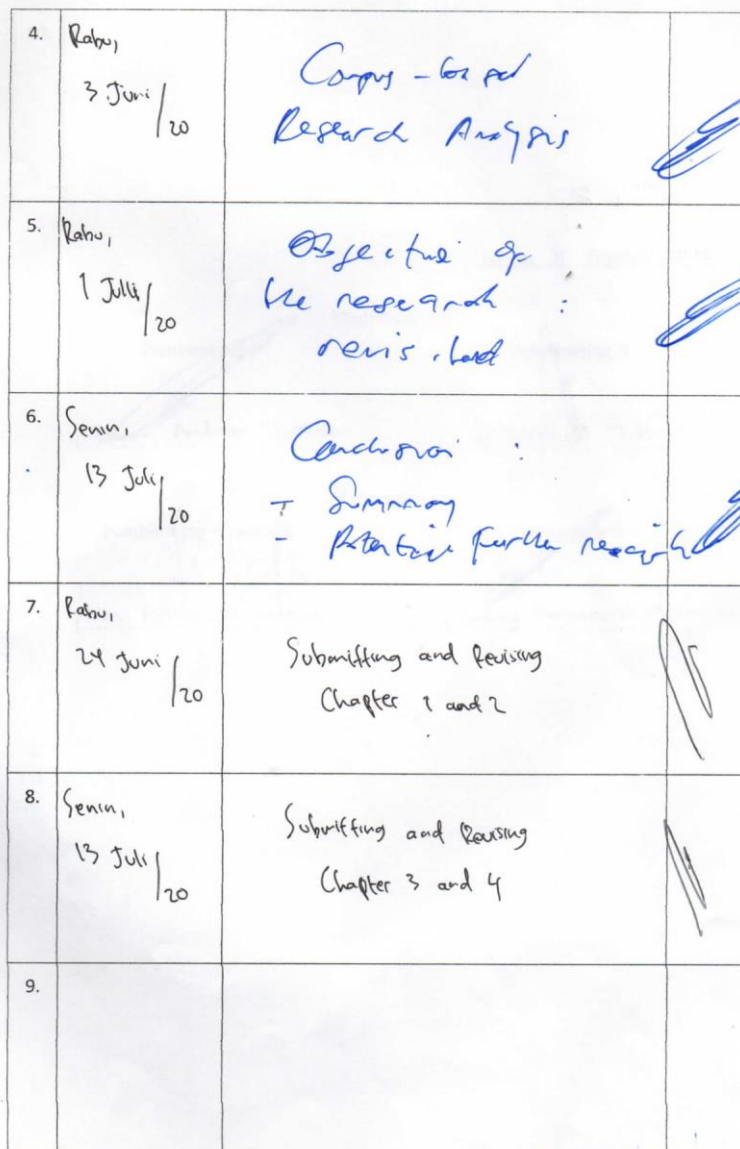 4.
Rabu,
3 Juni / 20
Corpus - based
Research Analysis
5.
Rabu,
1 Julli / 20
Objective of
the research :
revisited
6.
Senin,
13 Juli / 20
Conclusion :
- Summary
- Potential further research
7.
Rabu,
24 Juni / 20
Submitting and Revising
Chapter 1 and 2
8.
Senin,
13 Juli / 20
Submitting and Revising
Chapter 3 and 4
9.